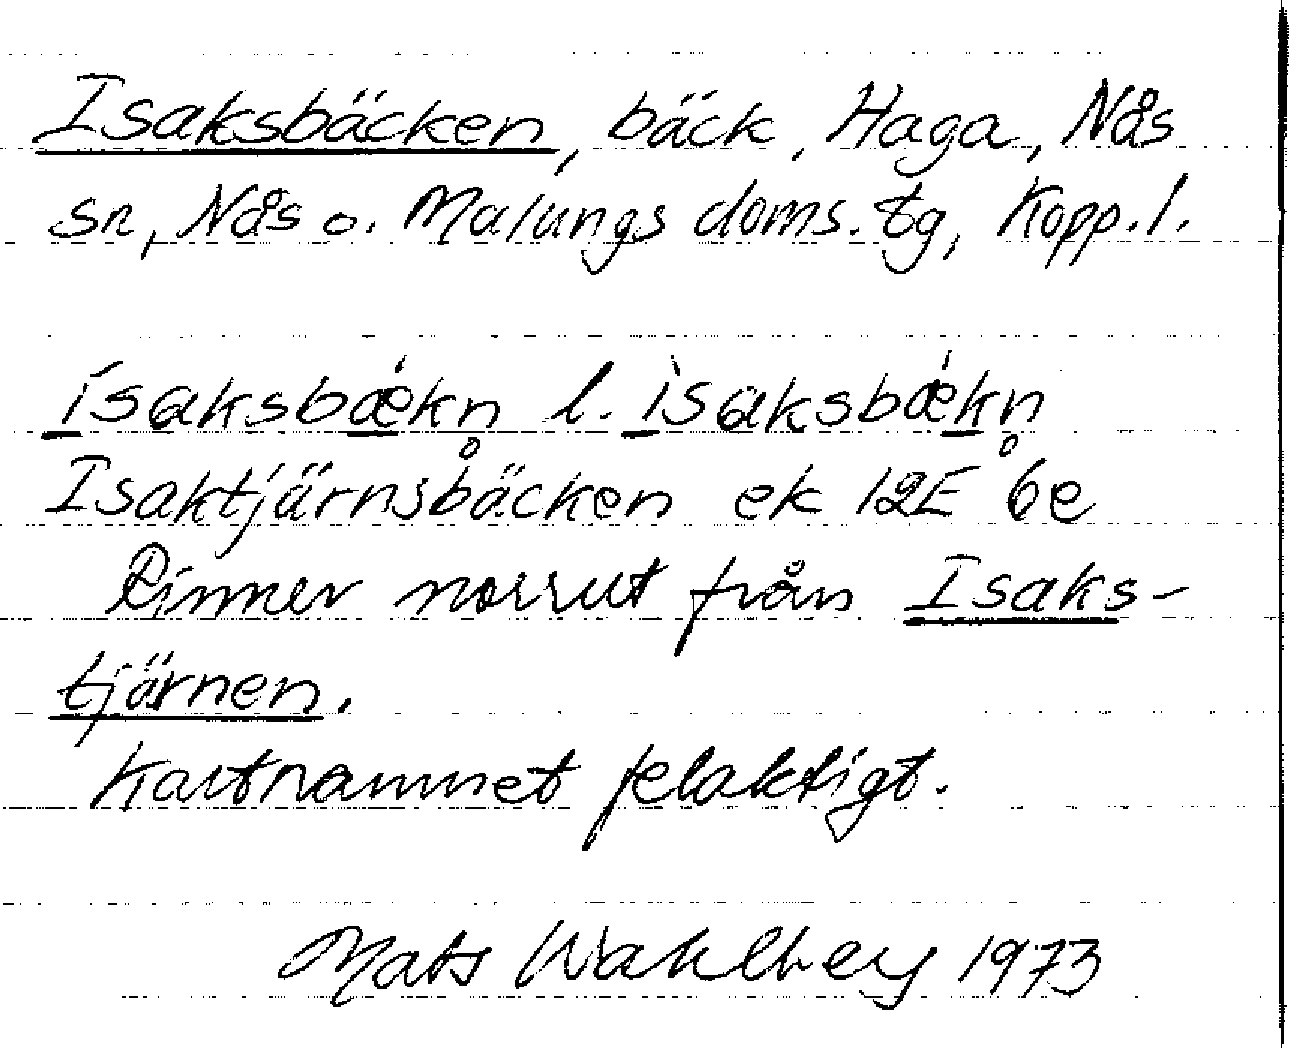 Isaksbäcken, bäck, Haga, Nås
sn, Nås o. Malungs doms. tg, Kopp. l.
ísaksbǽkn̥ l. ìsaksbǽkn̥
Isaktjärnsbäcken ek 12E 6e
Rinner norrut från Isaks-
tjärnen.
Kartnamnet felaktigt.
Mats Wahlberg 1973